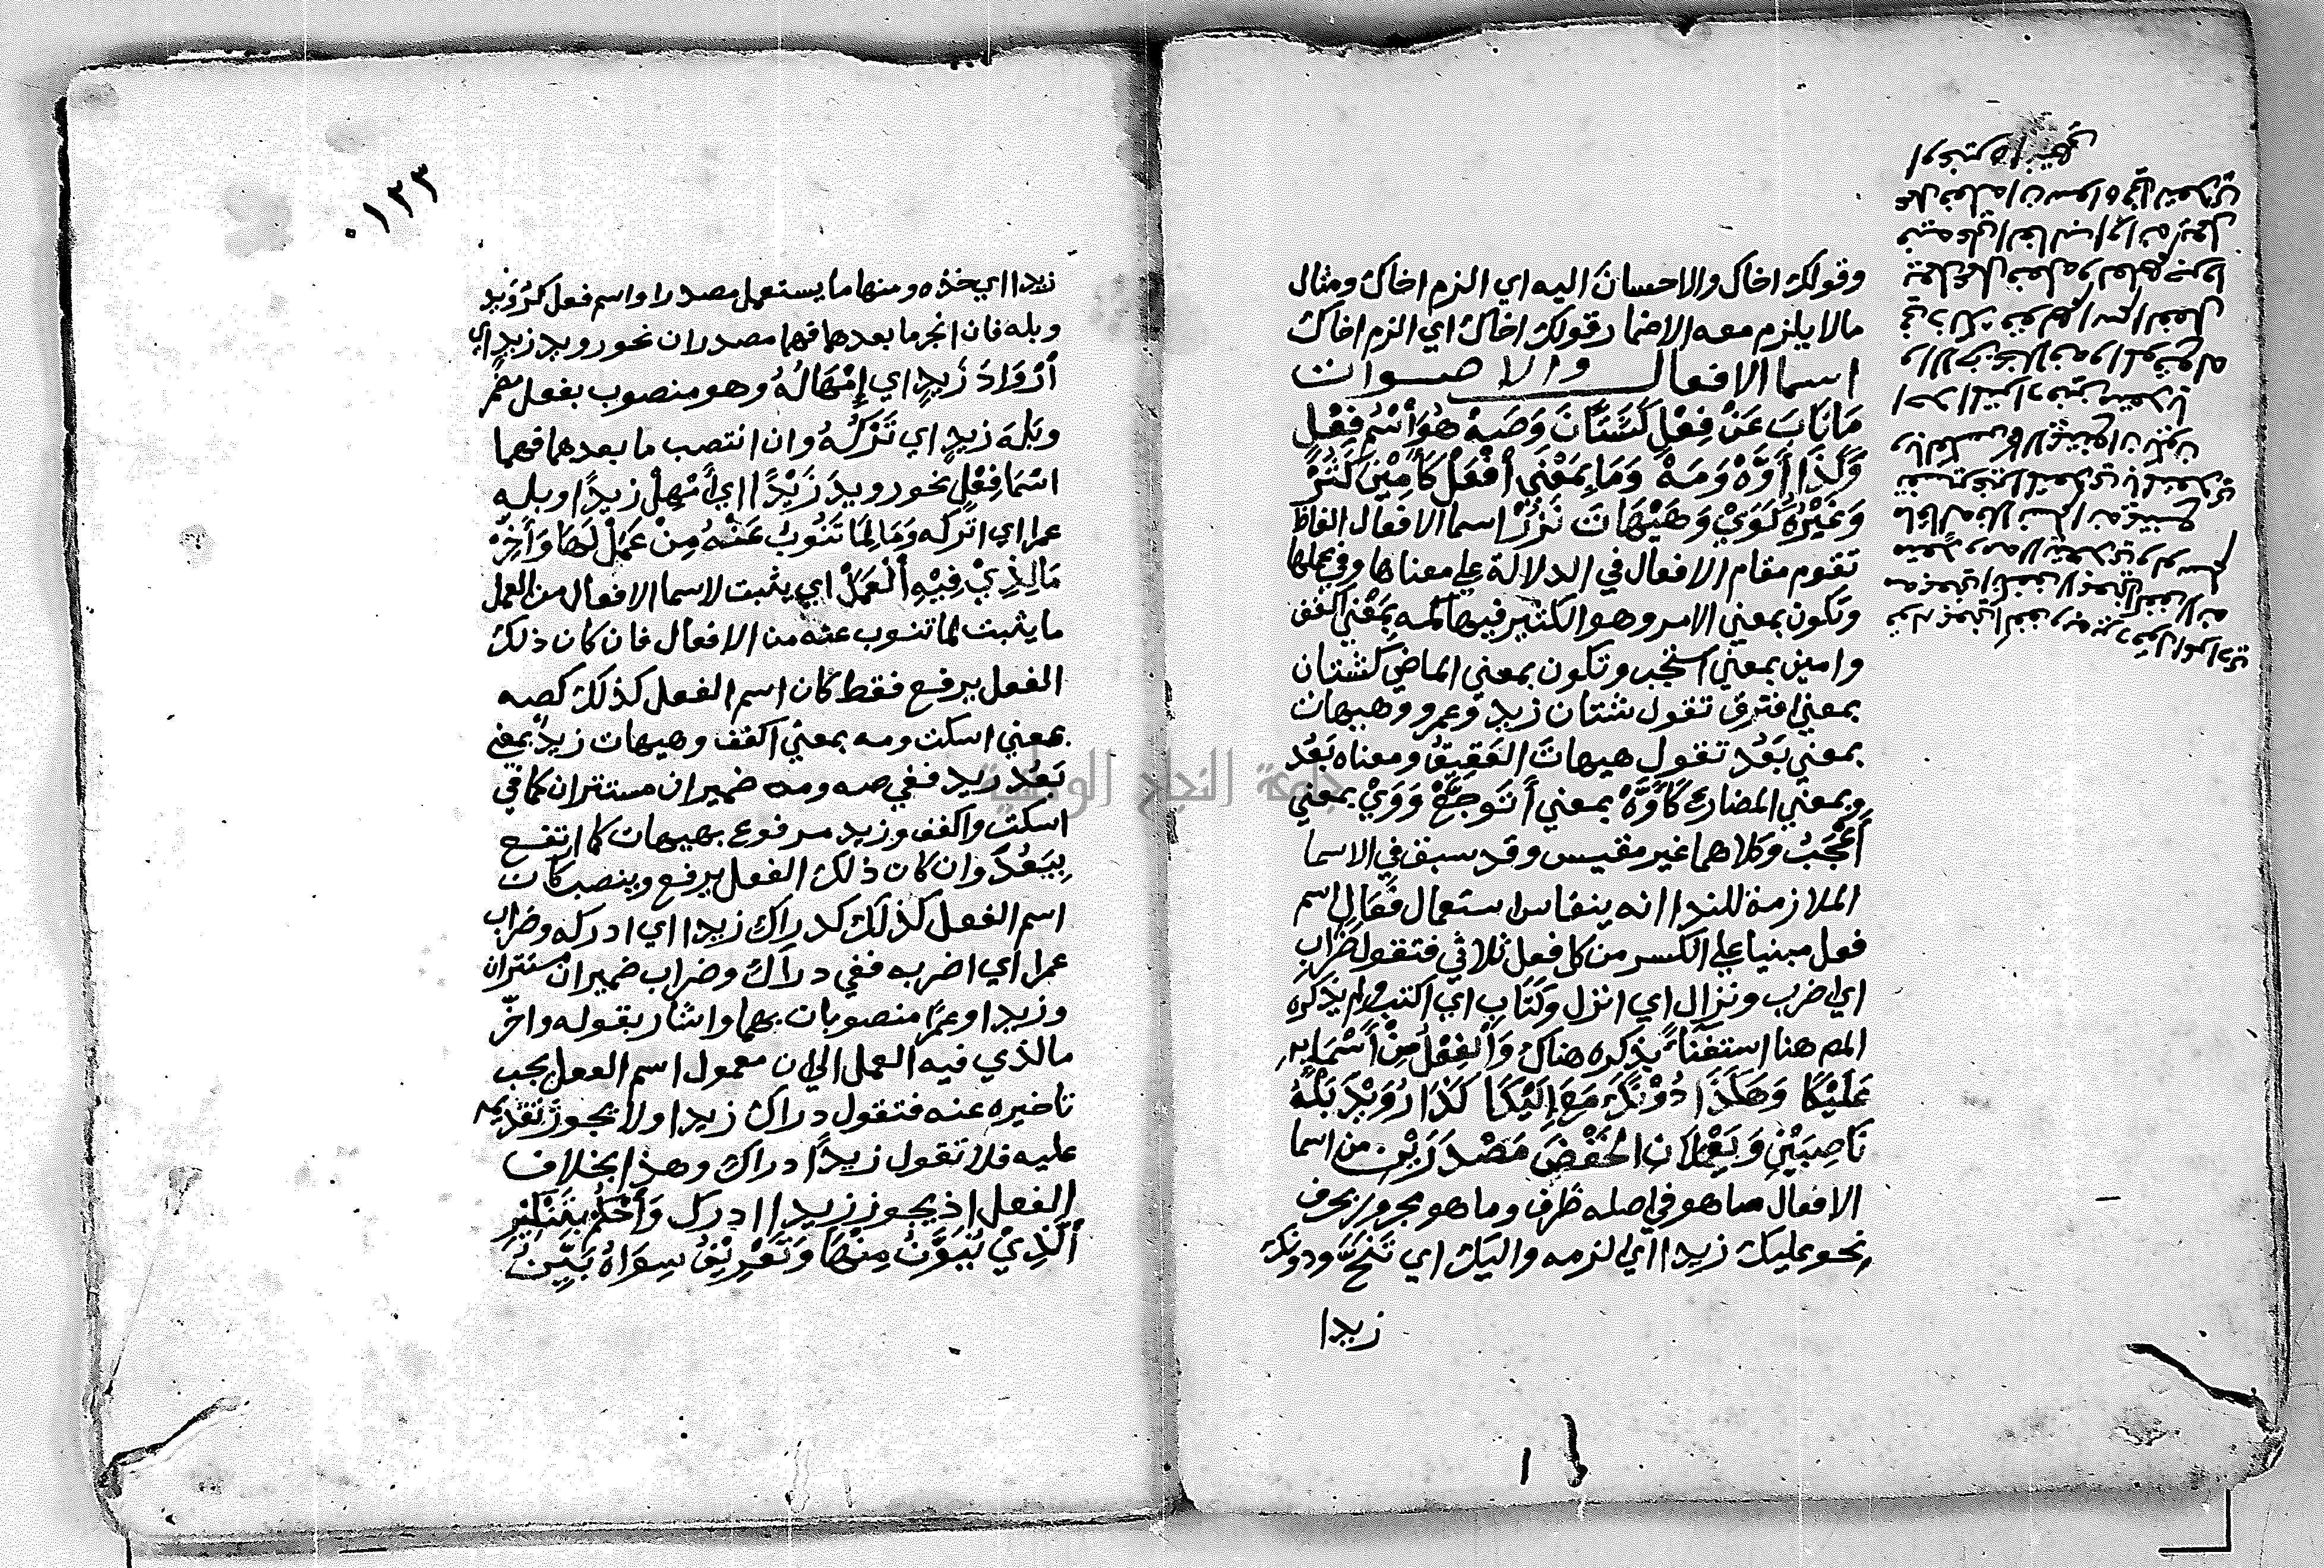 وقولك اخاك والاحسان اليه اي الزم اخاك ومثال
مالا يلزم معه الاضمار قولك اخاك اي الزم اخاك
اسما الافعال والاصوات
مَا نَابَ عَنْ فِعْلٍ كَشَتَّانَ وَصَهْ هُوَ اسْمُ فِعْلٍ
وَكَذَا أَوَّهْ وَمَهْ وَمَا بِمَعْنَي افْعَلْ كَآمِيْنَ كَثُرْ
وَغَيْرُهُ كَوَيْ وَهَيْهَاتَ نَزُرْ اسما الافعال الفاظ
تقوم مقام الافعال في الدلالة علي معناها وفي عملها
وتكون بمعني الامر وهو الكثير فيها كمه بِمَعْنَي اكفف
وامين بمعني استجب وتكون بمعني الماضي كشتان
بمعني افترق تقول شتان زيد وعمرو وهيهات
بمعني بَعُد تقول هيهات العقيق ومعناه بَعُد
وبمعني المضارع كَأَوَّهْ بمعني أَتَوَجَّعُ وَوَيْ بمعني
أَعْجَبُ وكلاهما غير مقيس وقد سبق في الاسما
الملازمة للندا انه ينقاس استعمال فَعَالِ اسم
فعل مبنيا علي الكسر من كل فعل ثلاثي فتقول ضَرَابِ
اي اضرب ونزال اي انزل وكَتَاب اي اكتب ولم يذكره
المص هنا استغناءً بذكره هناك وَالْفِعْلُ مِنْ أَسْمَايِهِ
عَلَيْكَا وَهَكَذَا دُوْنَكَ مَعَ إِلَيْكَا كَذَا رُوَيْدَ بَلْهَ
نَاصِبَيْنِ وَيَعْمَلَانِ الْخَفْضَ مَصْدَرَيْنِ من اسما
الافعال ما هو في اصله ظرف وما هو مجرور بحرف
نحو عليك زيدا اي الزمه واليك اي تَنَحَّ ودونك
زيدا
٠١٢٣
زيدا اي خذه ومنها ما يستعمل مصدرا واسم فعل كرُوَيد
وبله فان انجر ما بعدهما فهما مصدران نحو رويد زيدٍ اي
أرْوَادَ زَيدٍ اي إِمْهَالُهُ وهو منصوب بفعل مضمر
وبَلْهَ زيدٍ اي تَرْكُهُ وان انتصب ما بعدهما فهما
اسْمَا فِعْلٍ نحو رويدَ زَيْدًا اي أَمْهِلْ زيدًا وبله
عمرا اي اتركه وَمَا لِمَا تَنُوبُ عَنْهُ مِنْ عَمَلْ لَهَا وَأَخِّرْ
مَا لِذِيْ فِيْهِ الْعَمَلْ اي يثبت لاسما الافعال من العمل
ما يثبت لما تنوب عنه من الافعال فان كان ذلك
الفعل يرفع فقط كان اسم الفعل كذلك كصه
بمعني اسكت ومه بمعني اكفف وهيهات زيدٌ بمعني
بَعُدَ زيد ففي صه ومه ضميران مستتران كما في
اسكت واكفف وزيد مرفوع بهيهات كما ارتفع
بِبَعُدَ وان كان ذلك الفعل يرفع وينصب كان
اسم الفعل كذلك كدراك زيدا اي ادركه وضراب
عمرا اي اضربه ففي دراك وضراب ضميران مستتران
وزيدا وعمرًا منصوبان بهما واشار بقوله واخّر
ما لذي فيه العمل الي ان معمول اسم الفعل يجب
تاخيره عنه فتقول دراك زيدا ولا يجوز تقديمه
عليه فلا تقول زيداً دراك وهذا بخلاف
الفعل اذ يجوز زيدا ادرك وَأحْكُمْ بِتَنْكِيْرِ
الَّذِيْ يُنَوَّنُ مِنْهَا وَتَعْرِيْفُ سِوَاهُ بَيِّنُ
جامعة النجاح الوطنية